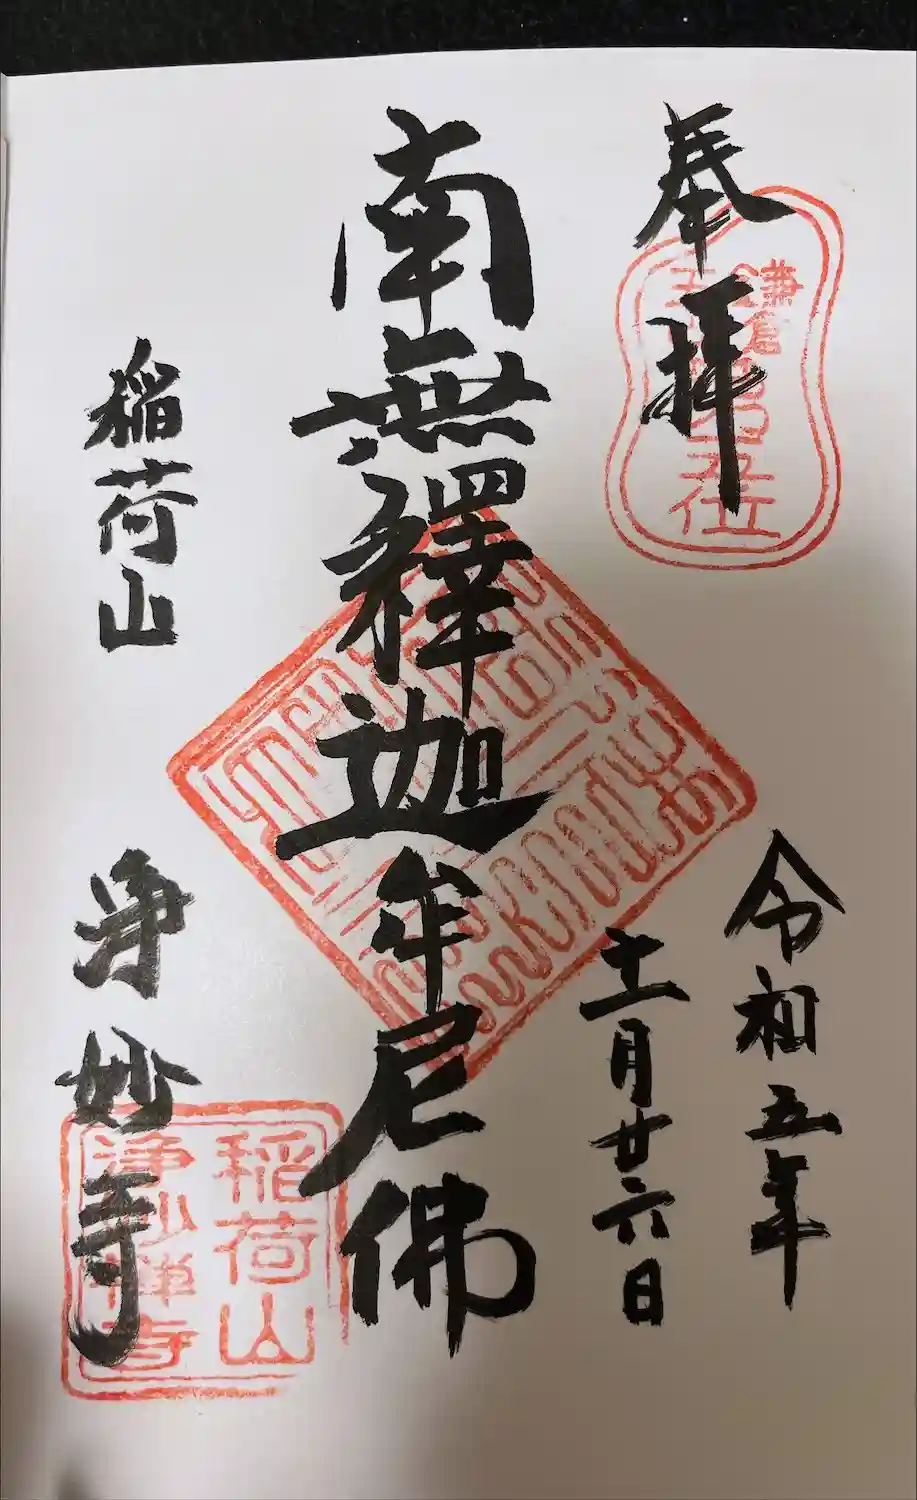 奉拝
鎌倉
五山
第五位
令和五年
十一月廿六日
南無釋迦牟尼佛
稲荷山
浄妙寺
稲荷山
浄妙禅寺